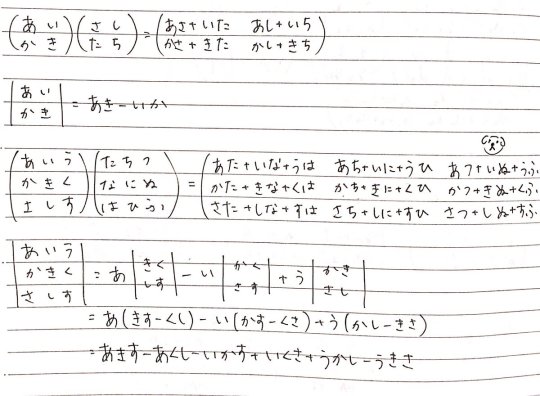 (あ い
か き)(さ し
た ち) = (あさ+いた あし+いち
かさ+きた かし+きち)
|あ い
か き| = あき-いか
(あ い う
か き く
さ し す)(た ち つ
な に ぬ
は ひ ふ) = (あた+いな+うは あち+いに+うひ あつ+いぬ+うふ
かた+きな+くは かち+きに+くひ かつ+きぬ+くふ
さた+しな+すは さち+しに+すひ さつ+しぬ+すふ)
|あ い う
か き く
さ し す| = あ|き く
し す| - い|か く
さ す| + う|か き
さ し|
= あ(きす-くし) - い(かす-くさ) + う(かし-きさ)
= あきす-あくし-いかす+いくさ+うかし-うきさ